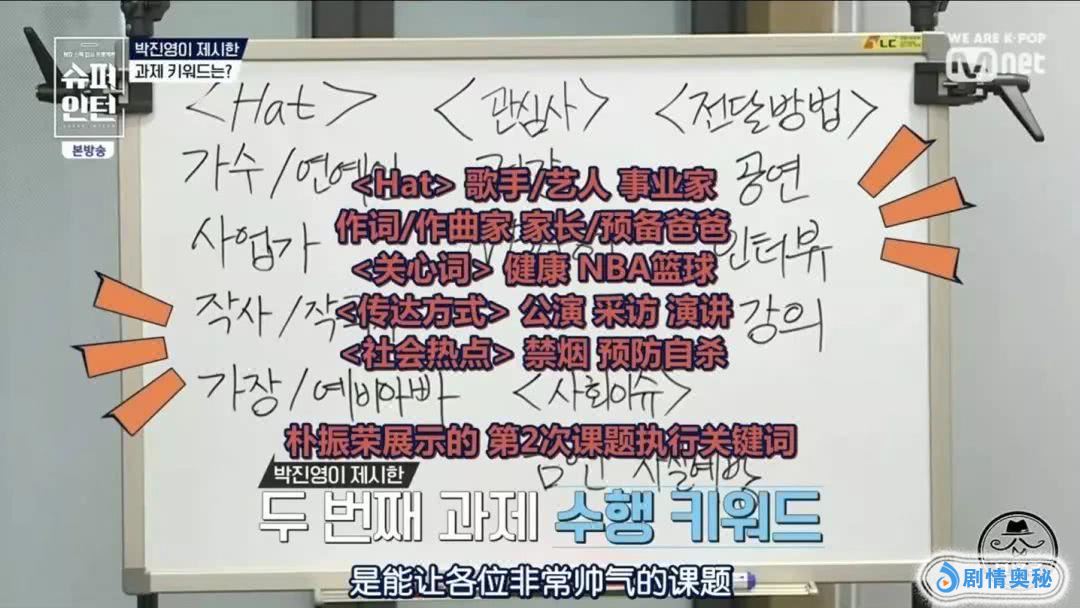 박진영이 제시한
과제 키워드는?
슈퍼
인턴
본방송
WE ARE K-POP
Mnet
LC
<Hat> <관심사> <전달방법>
가수/연예인 공연
사업가 인터뷰
작사/ 강의
가장/예비아빠 <사회이슈>
<Hat> 歌手/艺人 事业家
作词/作曲家 家长/预备爸爸
<关心词> 健康 NBA篮球
<传达方式> 公演 采访 演讲
<社会热点> 禁烟 预防自杀
朴振荣展示的 第2次课题执行关键词
박진영이 제시한
두 번째 과제 수행 키워드
是能让各位非常帅气的课题
剧情奥秘